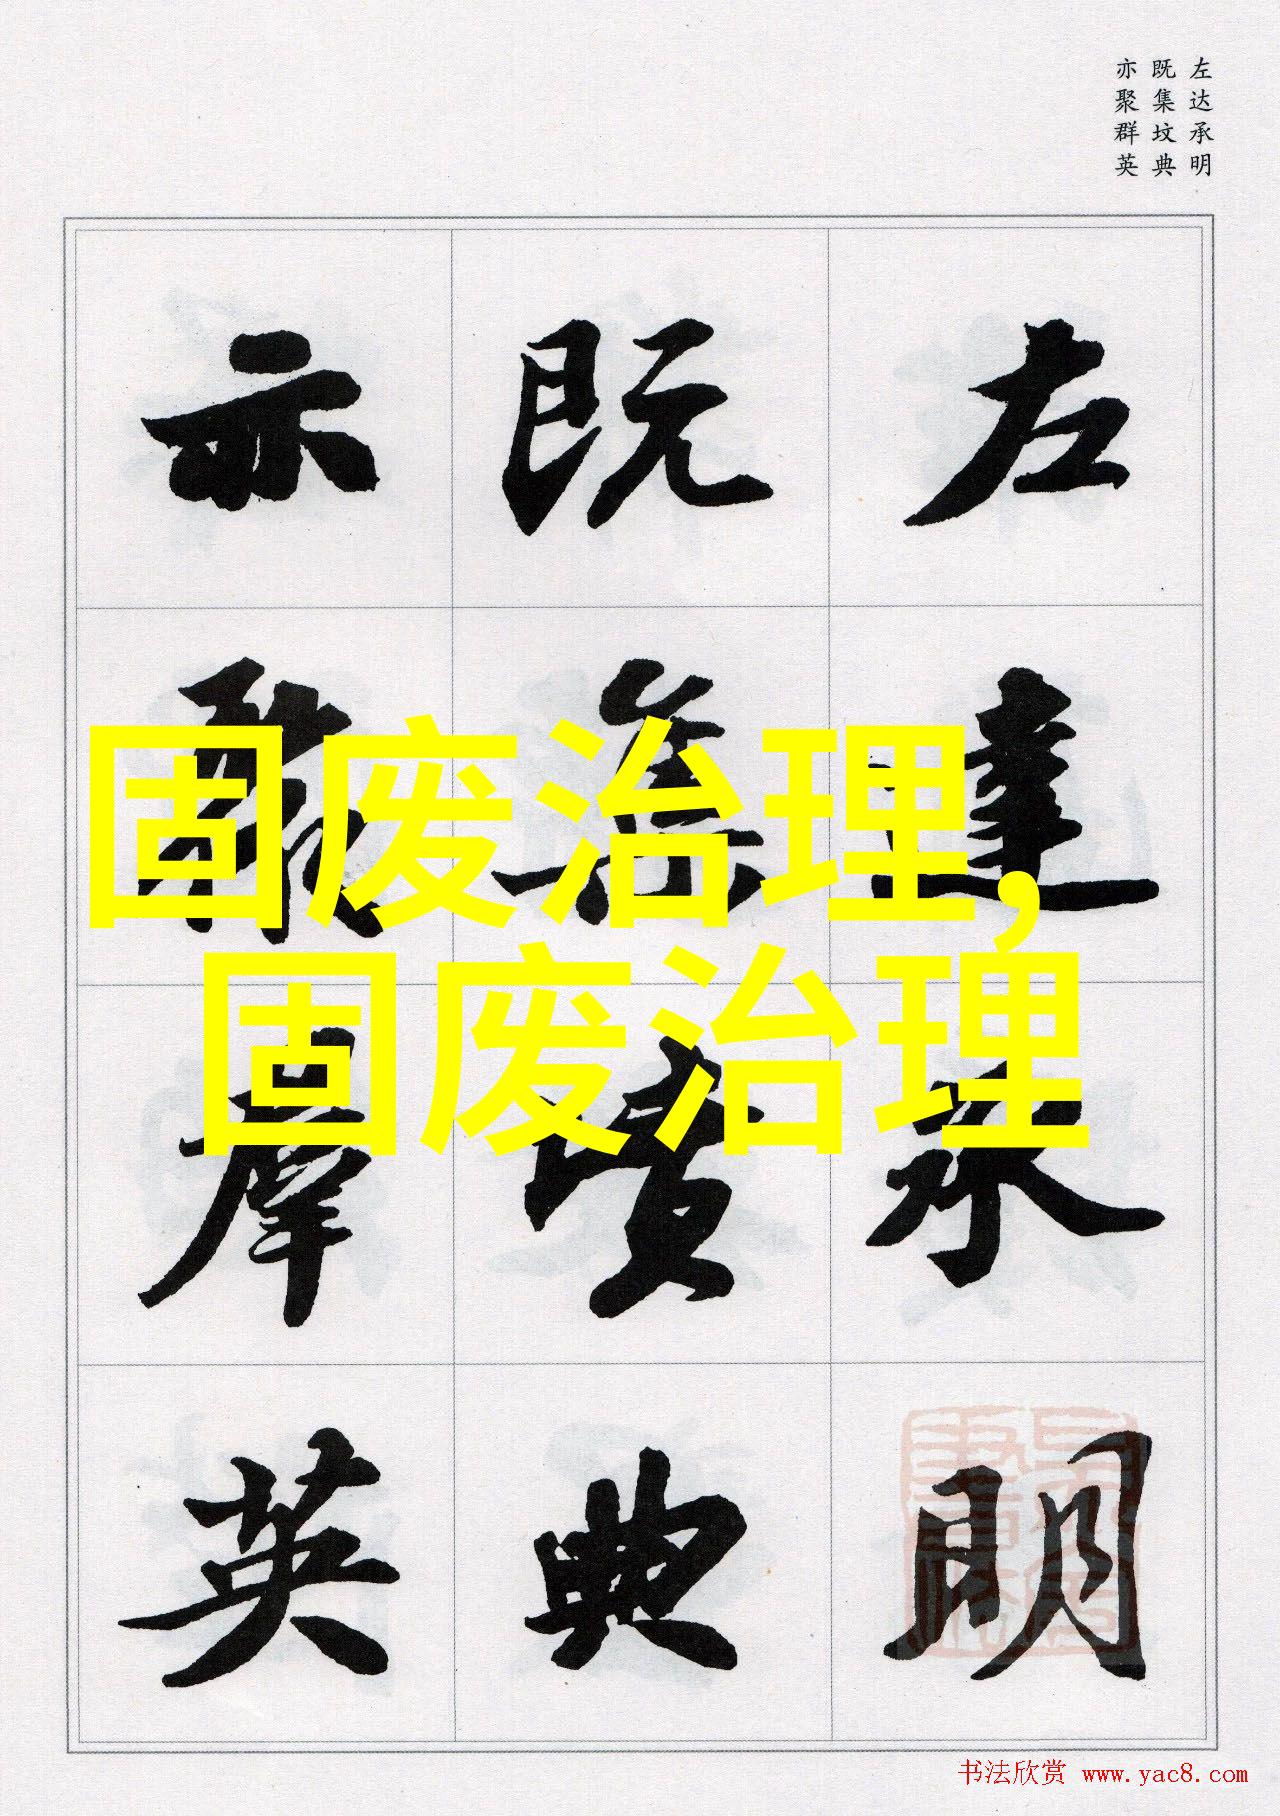 左达承明
既集坟典
亦聚群英
左達承明
既集墳典
亦聚羣英
固废治理,
固废治理
书法欣赏 www.yac8.com